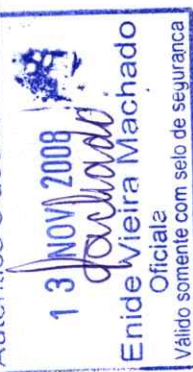 1 3 NOV 2008
Enide Vieira Machado
Oficiala
Válido somente com selo de segurança